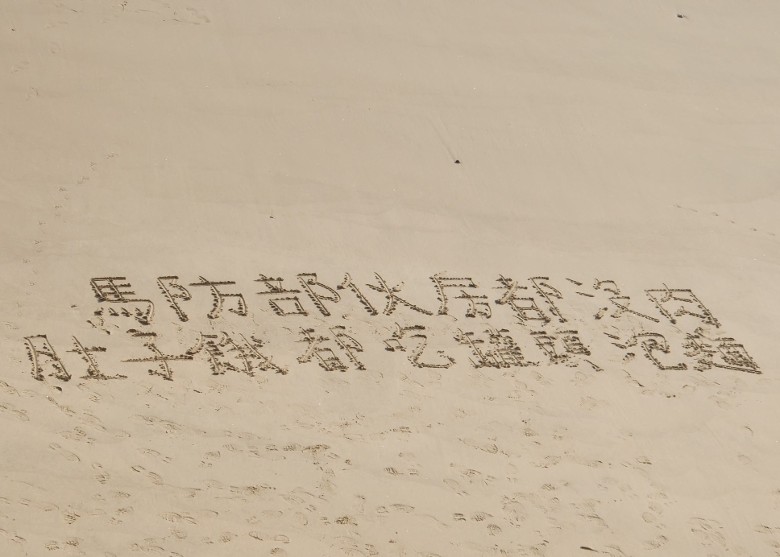 馬防部伙房都沒肉
肚子餓都吃罐頭泡麵